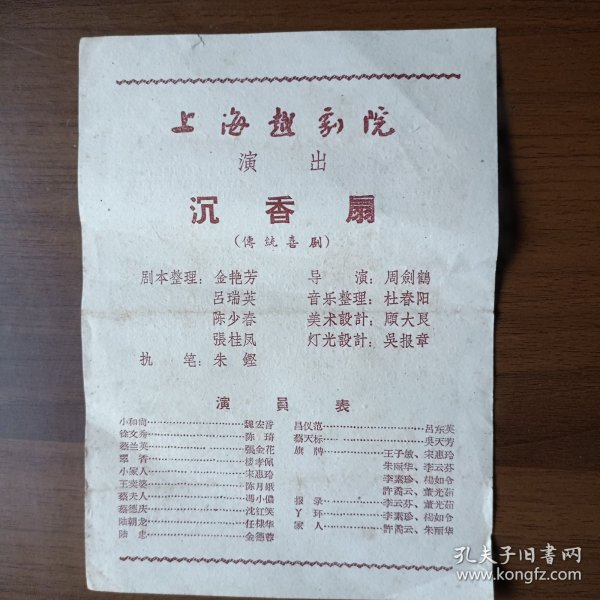 上海越剧院
演出
沉香扇
(傳統喜剧)
剧本整理：金艳芳
呂瑞英
陈少春
張桂凤
执笔：朱鏗
导演：周劍鶴
音乐整理：杜春阳
美术設計：顾大良
灯光設計：吳报章
演員表
小和尚 魏安音
徐文秀 陈琦
蔡兰英 張金花
翠香 楼孝佩
小家人 宋惠玲
王卖婆 陈月娥
蔡夫人 馮小儂
蔡德庆 沈紅笑
陆朝龙 任棣华
陆忠 金德蓉
呂仪范 呂东英
蔡天标 吳天芳
旗牌 王子敏、宋惠玲
朱丽华、李云芬
李素珍、楊如令
許喬云、董光茹
报录 李云芬、董光茹
丫环 李素珍、楊如令
家人 許喬云、朱丽华
孔夫子旧书网
www.kongfz.com